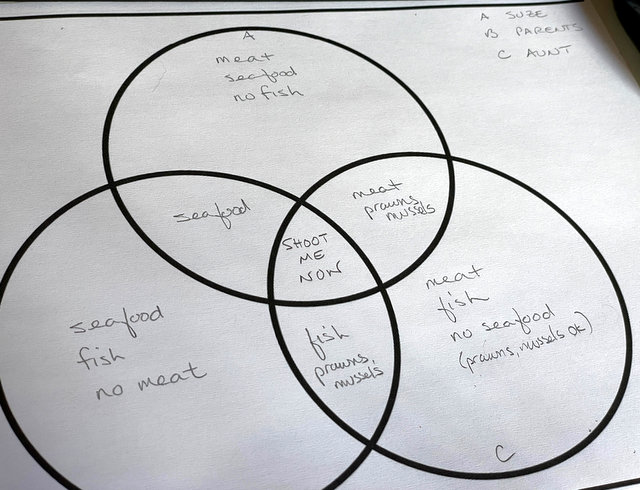 A SUZE
B PARENTS
C AUNT
A
meat
seafood
no fish
seafood
meat
prawns,
mussels
SHOOT
ME
NOW
seafood
fish
no meat
fish
prawns,
mussels
meat
fish
no seafood
(prawns, mussels ok)
C